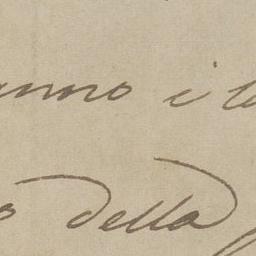 anno i le
o della